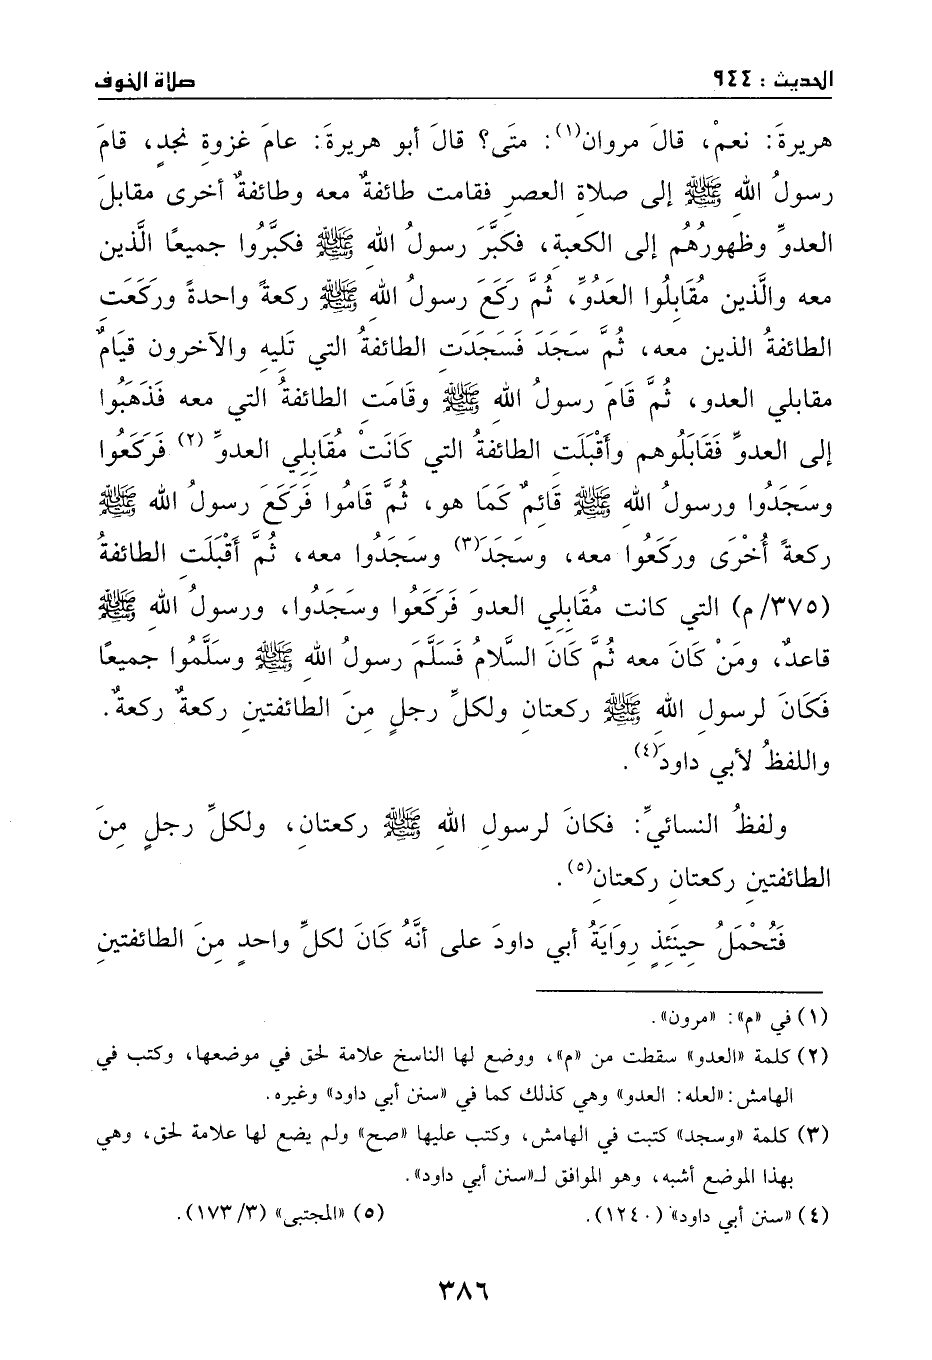 الحديث : ٩٤٤ صلاة الخوف
هريرةَ: نعمْ، قالَ مروان(١): متَى؟ قالَ أبو هريرةَ: عامَ غزوةِ نجدٍ، قامَ
رسولُ اللهِ ﷺ إلى صلاةِ العصرِ فقامت طائفةٌ معه وطائفةٌ أخرى مقابلَ
العدوِّ وظهورُهُم إلى الكعبةِ، فكبَّرَ رسولُ اللهِ ﷺ فكبَّرُوا جميعًا الَّذين
معه والَّذين مُقَابِلُوا العَدُوِّ، ثُمَّ ركَعَ رسولُ اللهِ ﷺ ركعةً واحدةً وركَعَتِ
الطائفةُ الذين معه، ثُمَّ سجَدَ فَسَجَدَتِ الطائفةُ التي تَلِيهِ والآخرون قيَامٌ
مقابلي العدو، ثُمَّ قَامَ رسولُ اللهِ ﷺ وقَامَتِ الطائفةُ التي معه فَذَهَبُوا
إلى العدوِّ فَقَابَلُوهم وأَقْبَلَتِ الطائفةُ التي كَانَتْ مُقَابِلِي العدوِّ (٢) فَركَعُوا
وسَجَدُوا ورسولُ اللهِ ﷺ قَائمٌ كَمَا هو، ثُمَّ قَامُوا فَركَعَ رسولُ اللهِ ﷺ
ركعةً أُخْرَى وركَعُوا معه، وسجَدَ(٣) وسَجَدُوا معه، ثُمَّ أَقْبَلَتِ الطائفةُ
(٣٧٥/ م) التي كانت مُقَابِلِي العدوَ فَركَعُوا وسَجَدُوا، ورسولُ اللهِ ﷺ
قاعدٌ، ومَنْ كَانَ معه ثُمَّ كَانَ السَّلامُ فَسَلَّمَ رسولُ اللهِ ﷺ وسَلَّمُوا جميعًا
فَكَانَ لرسولِ اللهِ ﷺ ركعتان ولكلِّ رجلٍ مِنَ الطائفتينِ ركعةٌ ركعةٌ.
واللفظُ لأبي داودَ(٤).
ولفظُ النسائيِّ: فكانَ لرسولِ اللهِ ﷺ ركعتانِ، ولكلِّ رجلٍ مِنَ
الطائفتينِ ركعتانِ ركعتانِ(٥).
فَتُحْمَلُ حِينَئذٍ رِوَايَةُ أبي داودَ على أنَّهُ كَانَ لكلِّ واحدٍ مِنَ الطائفتينِ
(١) في «م»: «مرون».
(٢) كلمة «العدو» سقطت من «م»، ووضع لها الناسخ علامة لحق في موضعها، وكتب في
الهامش: «لعله: العدو» وهي كذلك كما في «سنن أبي داود» وغيره.
(٣) كلمة «وسجد» كتبت في الهامش، وكتب عليها «صح» ولم يضع لها علامة لحق، وهي
بهذا الموضع أشبه، وهو الموافق لـ«سنن أبي داود».
(٤) «سنن أبي داود» (١٢٤٠). (٥) «المجتبى» (٣/ ١٧٣).
٣٨٦